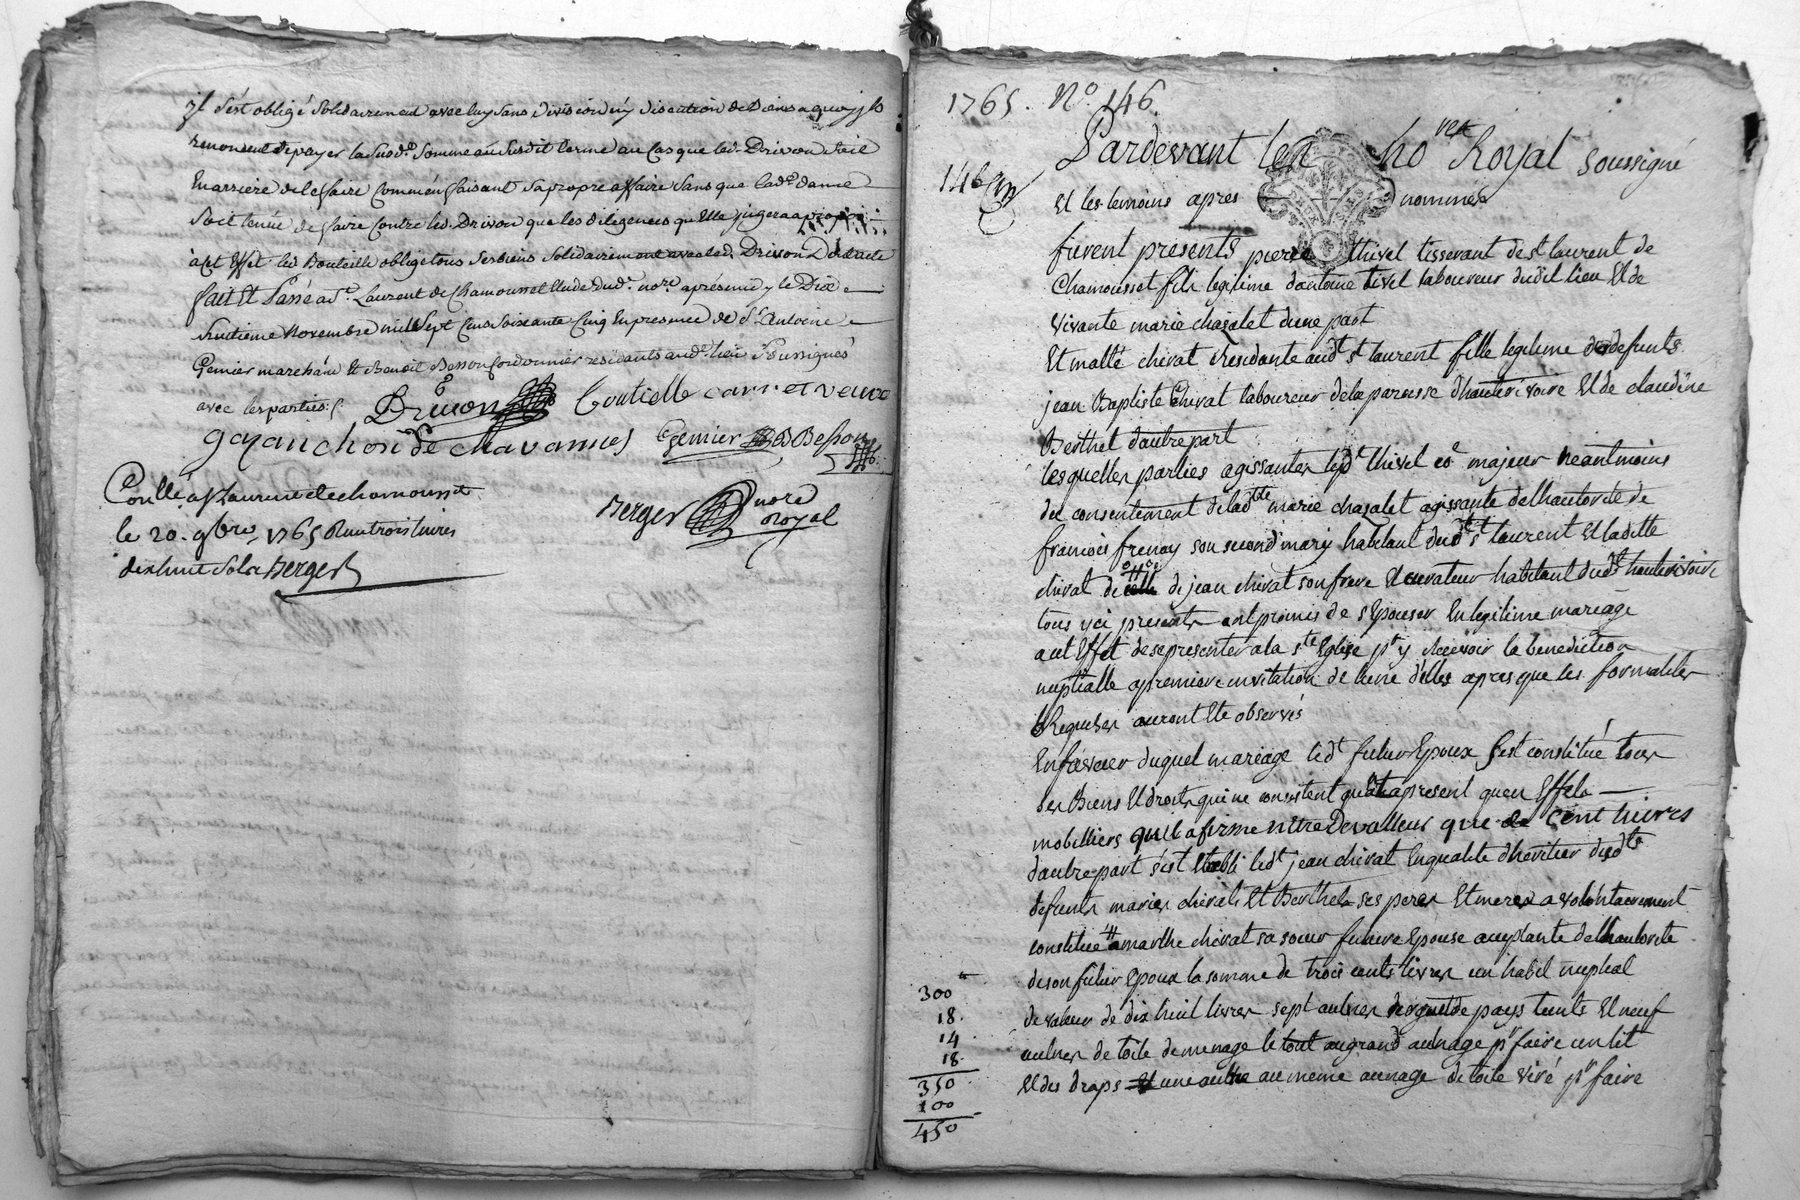 jl s'est obligé solidairement avec luy sans division ny discution de biens a quoy jls
renoncent de payer la susd.e somme au susdit terme au cas que led. Drivon soit
En arriere de le faire comme en faisant sa propre affaire sans que lad.e dame
soit tenue de faire contre led. Drivon que les diligences qu Elle jugera apropos
a Cet Effet led. Bouteille oblige tous ses biens solidairement avec led. Drivon Dont acte
fait Et Passé a S.t Laurent de Chamousset Etude dud. no.re apresmidy le Dix
huitieme Novembre mil sept Cens soixante Cinq En presence de S.r Antoine
Gemier marchand Et Benoit Besson Cordonnier residants aud. lieu Soussignés
avec les parties
Drivon Coutielle carret veuve
gayanchon de chavannes Gemier B Besson
Conllé a S.t Laurent de chamousset
le 20. 9bre 1765 R trois livres
dix huit sols Berger
Berger nore
Royal
1765. No. 146.
146
Pardevant Le no.re Royal soussigné
Et les temoins apres nommés
furent presents pierre thivel tisserant de St laurent de
Chamousset fils legitime d'antoine tivel laboureur dudit lieu Et de
vivante marie chazalet d'une part
Et matte chirat Residante aud.t St laurent fille legitime de defunts
jean Baptiste Chirat laboureur de la paroisse d'hauterivoire Et de claudine
Berthet d'autre part
lesquelles parties agissantes led.t thivel co.e majeur neantmoins
du consentement de lad.tte marie chazalet agissante de l'hautorité de
francois frenay son second mary habitant dud.t St laurent Et la ditte
chirat de celle de jean chirat son frere Et curateur habitant dud.t hauterivoire
tous yci presents ont promis de s'Epouser En legitime mariage
a cet Effet de se presenter a la S.te Eglise p.r y Recevoir la benediction
nuptialle a premiere invitation de l'une d'elles apres que les formalites
Requises auront Ete observés
En faveur duquel mariage led.t futur Epoux s'est constitué tous
ses Biens Et droits qui ne consistent quant apresent qu'en Effets
mobilliers qu'il afirme n'etre De valleur que de Cent livres
d'autre part s'est Etabli led.t jean chirat En qualite d'heritier desd.ts
defunts mariés chirat Et Berthet ses pere Et mere a volontairement
constitué a marthe chirat sa soeur future Epouse acceptante de l'hautorité
de son futur Epoux la somme de trois cents livres un habit nuptial
de valeur de dix huit livres sept aulnes de pays teints Et neuf
aulnes de toile de menage le tout au grand aulnage p.r faire un lit
Et des draps Et une autre au meme aunage de toile viré p.r faire
300
18.
14
18.
350
100
450